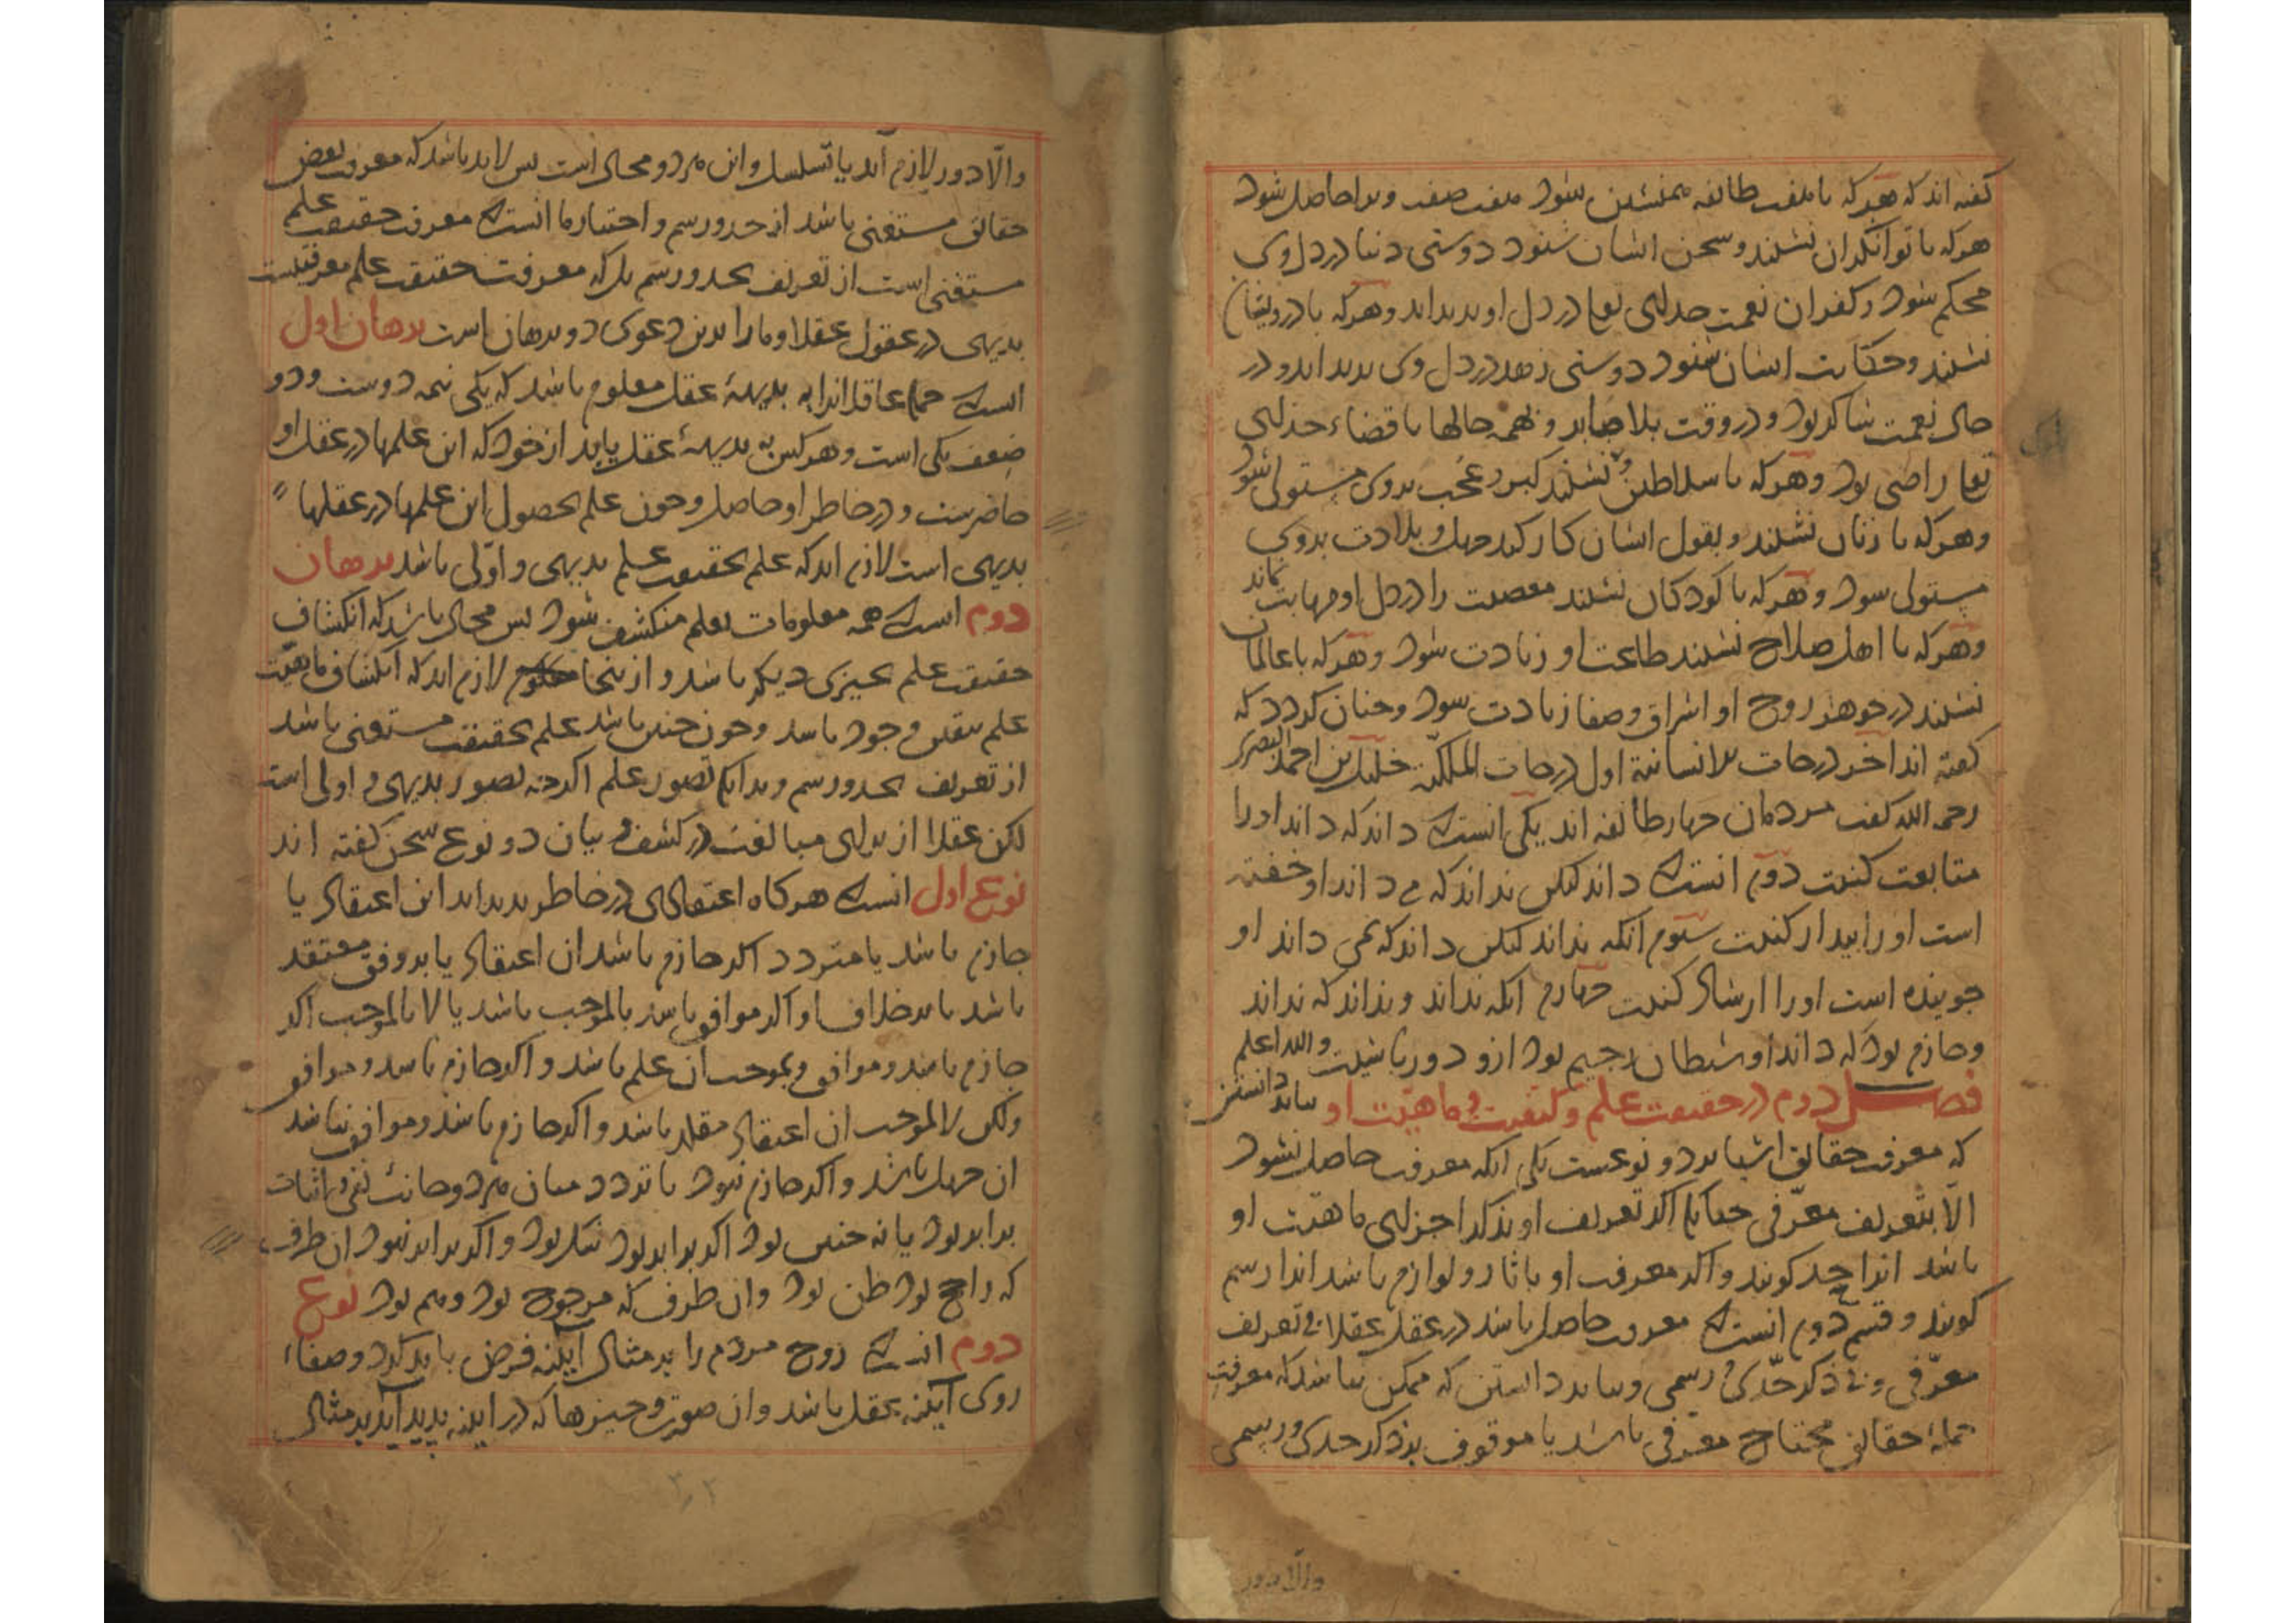 گفته اند که هرکه با هفت طائفه همنشین شود هفت صفت ویرا حاصل شود
هرکه با توانکران نشیند و سخن ایشان شنود دوستی دنیا در دل وی
محکم شود و کفران نعمت خدای تعا در دل او پدید اید و هرکه با درویشان
نشیند و حکایت ایشان شنود دوستی زهد در دل وی پدید اید و در
حال نعمت شاکر بود و در وقت بلا صابر و بهمه حالها با قضاء خدای
تعا راضی بود و هرکه با سلاطین نشیند کبر و عُجب بروی مستولی شود
و هرکه با زنان نشیند و بقول ایشان کار کند جهل و بلادت بروی
مستولی شود و هرکه با کودکان نشیند معصیت را در دل او مهابت نماند
و هرکه با اهل صلاح نشیند طاعت او زیادت شود و هرکه با عالمان
نشیند در جوهر روح او اشراق و صفا زیادت شود و چنان کردد که
کفته اند اخر درجات الانسانیة اول درجات الملکیّة خلیل بن احمد البصری
رحمه الله کفت مردمان چهار طائفه اند یکی انست که داند که داند او را
متابعت کنیت دوم انست که داند لیکن نداند که می داند او خفته
است او را بیدار کنیت سیوم آنکه نداند لیکن داند که نمی داند او
جوینده است او را ارشاد کنیت چهارم انکه نداند و نداند که نداند
و جازم بود که داند او شیطان رجیم بود ازو دور باشیت والله اعلم
فصل دوم در حقیقت علم و کیفیت و ماهیّت او بباید دانستن
که معرفت حقائق اشیا بر دو نوعست یکی انکه معرفت حاصل نشود
الّا بتعریف معرّفی چنانکه اکر تعریف او بذکر اجزای ماهیّت او
باشد انرا حد کویند و اکر معرفت او باثار و لوازم باشد انرا رسم
کویند و قسم دوم انست که معرفت حاصل باشد در عقل عقلا بی تعریف
معرّفی و بی ذکر حدّی و رسمی و بباید دانستن که ممکن نباشد که معرفت
جملهٔ حقائق محتاج معرفی باشد یا موقوف بذکر حدی و رسمی
والا دور
والّا دور لازم آید یا تسلسل و این هردو محال است پس لابد باشد که معرفت بعض
حقائق مستغنی باشد از حد و رسم و اختیار ما انست که معرفت حقیقت علم
مستغنی است از تعریف بحد و رسم بل که معرفت حقیقت علم معرفتیست
بدیهی در عقول عقلا و ما را برین دعوی دو برهان است برهان اول
انست که جمله عاقلانرا به بدیههٔ عقل معلوم باشد که یکی نیمه دوست و دو
ضعف یکی است و هر کس به بدیههٔ عقل یابد از خود که این علمها در عقل او
حاضرست و در خاطر او حاصل و چون علم بحصول این علمها در عقلها
بدیهی است لازم اید که علم بحقیقت علم بدیهی و اوّلی باشد برهان
دوم انست که همه معلومات بعلم منکشف شود پس محال باشد که انکشاف
حقیقت علم بچیزی دیکر باشد و از ینجا لازم اید که انکشاف ماهیّت
علم بنفس وجود باشد و چون چنین باشد علم بحقیقت مستغنی باشد
از تعریف بحد و رسم و بدانکه تصور علم اکرچه تصور بدیهی و اولی است
لکن عقلا از برای مبالغت در کشف و بیان دو نوع سخن کفته اند
نوع اول انست که هرکاه اعتقادی در خاطر پدید اید این اعتقاد یا
جازم باشد یا متردد اکر جازم باشد ان اعتقاد یا بر وفق معتقد
باشد یا بر خلاف او اکر موافق باشد بالموجب باشد یا لا بالموجب اکر
جازم باشد و موافق و بموجب ان علم باشد و اکر جازم باشد و موافق
ولکن لا لموجب ان اعتقاد مقلد باشد و اکر جازم باشد و موافق نباشد
ان جهل باشد و اکر جازم نبود با تردد میان هردو جانب نفی و اثبات
برابر بود یا نه چنین بود اکر برابر بود شک بود و اکر برابر نبود ان طرف
که راجح بود ظن بود وان طرف که مرجوح بود وهم بود نوع
دوم انست که روح مردم را بر مثال آینه فرض باید کرد و صفاء
روی آینه عقل باشد وان صورت و چیزها که در اینه پدید آید بر مثال